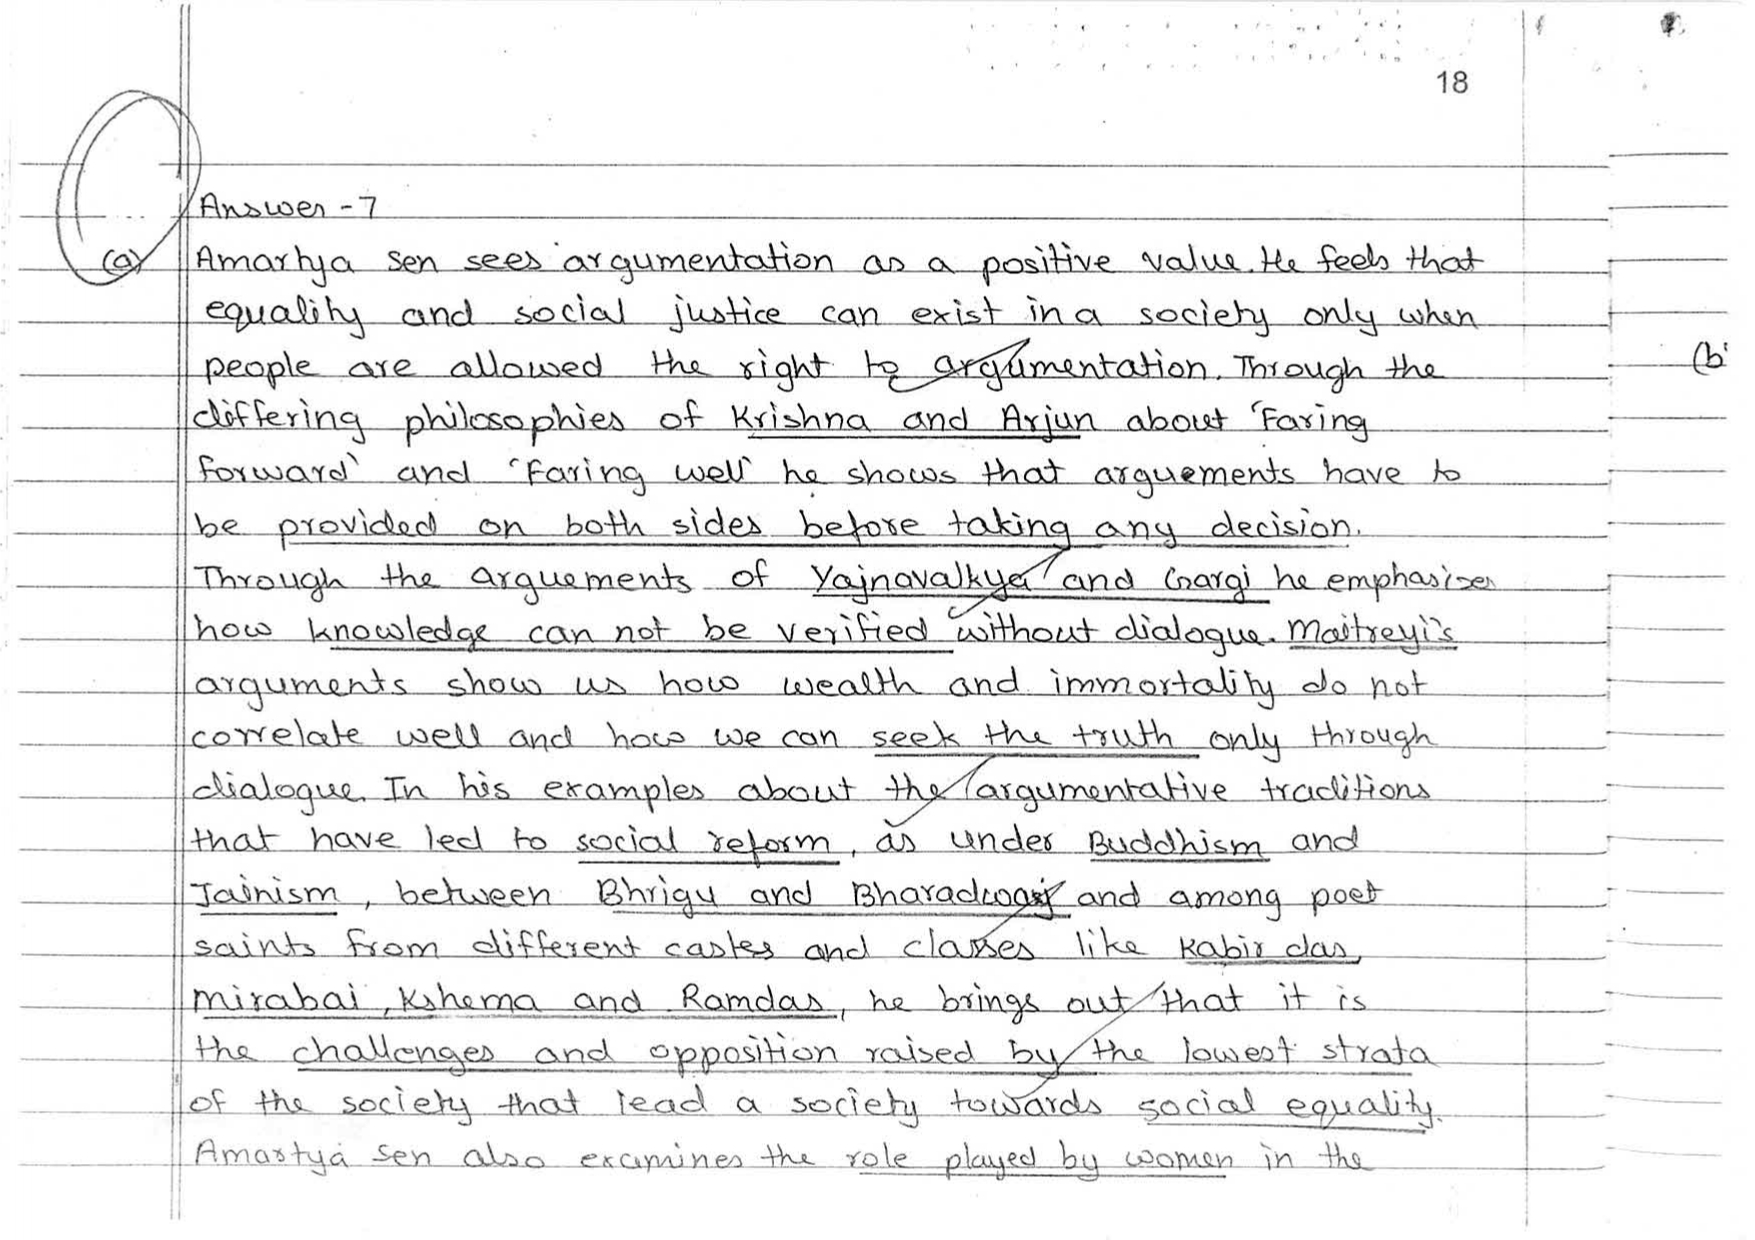 18
Answer - 7
(a) Amartya Sen sees argumentation as a positive value. He feels that
equality and social justice can exist in a society only when
people are allowed the right to argumentation. Through the
(b
differing philosophies of Krishna and Arjun about 'Faring
forward' and 'Faring well' he shows that arguements have to
be provided on both sides before taking any decision.
Through the arguements of Yajnavalkya and Gargi he emphasizes
how knowledge can not be verified without dialogue. Maitreyi's
arguments show us how wealth and immortality do not
correlate well and how we can seek the truth only through
dialogue. In his examples about the argumentative traditions
that have led to social reform, as under Buddhism and
Jainism, between Bhrigu and Bharadwaj and among poet
saints from different castes and classes like Kabir das,
Mirabai, Kshema and Ramdas, he brings out that it is
the challenges and opposition raised by the lowest strata
of the society that lead a society towards social equality.
Amartya Sen also examines the role played by women in the